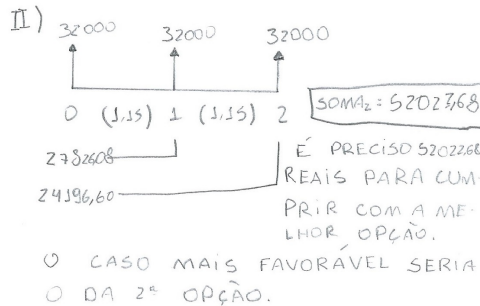 II)
32000 32000 32000
0 (1,15) 1 (1,15) 2
SOMA₂ = 52023,68
27826,08
24196,60
É PRECISO 52022,68
REAIS PARA CUM-
PRIR COM A ME-
LHOR OPÇÃO.
O CASO MAIS FAVORÁVEL SERIA
O DA 2ª OPÇÃO.